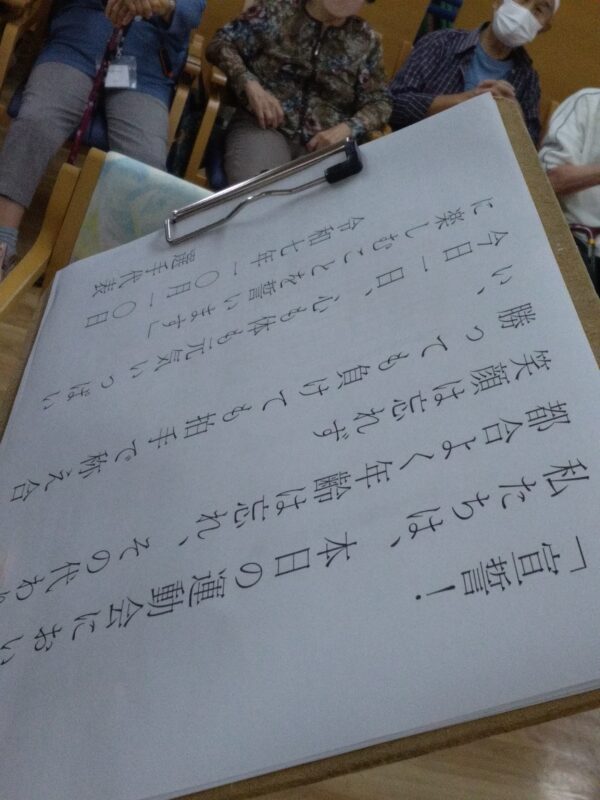 「宣誓!
私たちは、本日の運動会におい
都合よく年齢は忘れ、その代わり
笑顔は忘れず
い、勝っても負けても拍手で称え合
今日一日、心も体も元気いっぱい
に楽しむことを誓います」
令和七年一〇月一〇日
選手代表